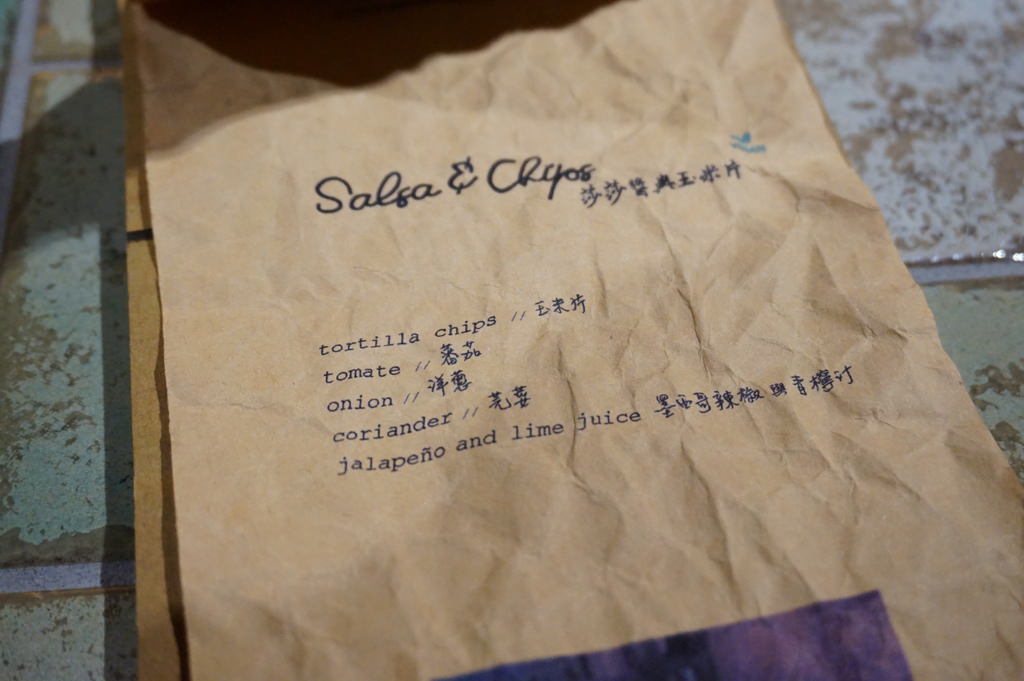 Salsa & Chips 莎莎醬與玉米片
tortilla chips // 玉米片
tomate // 蕃茄
onion // 洋蔥
coriander // 芫荽
jalapeño and lime juice 墨西哥辣椒與青檸汁